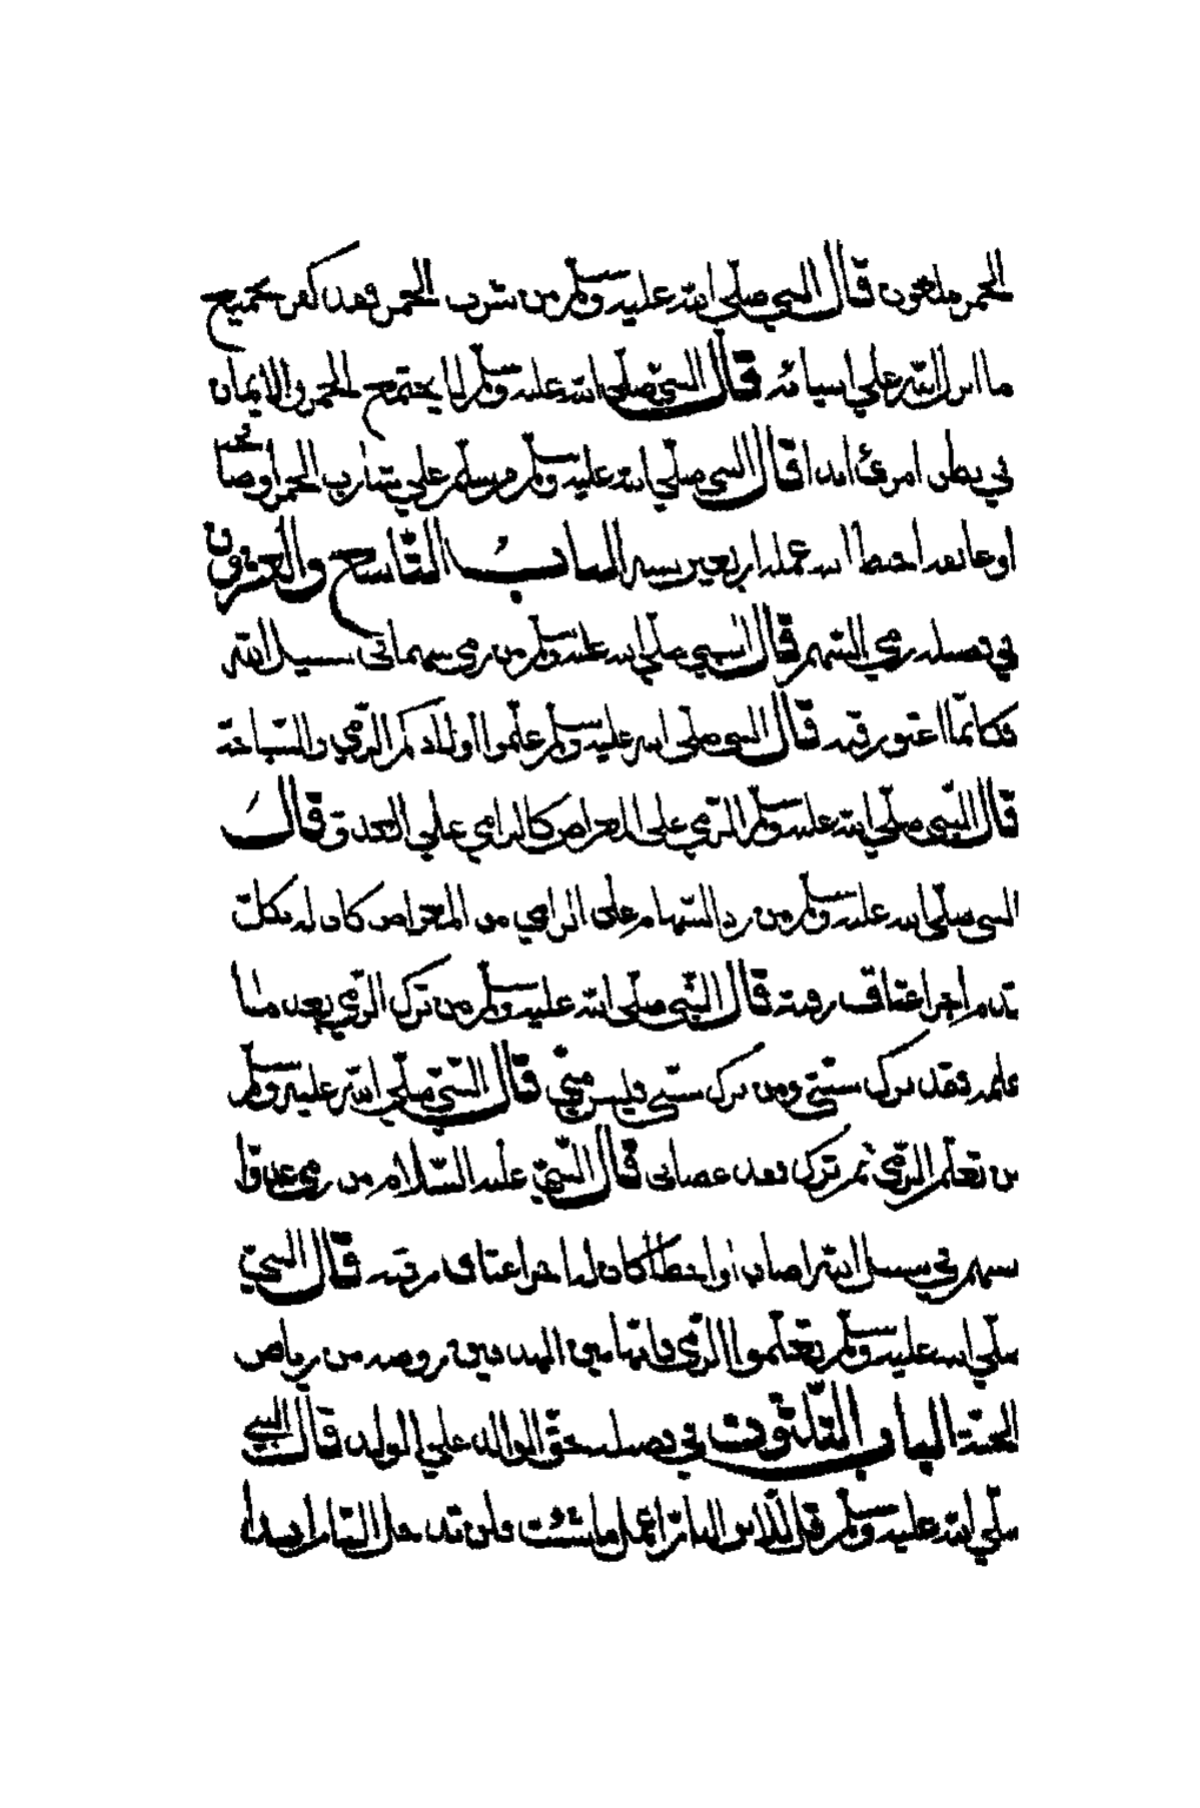 الخمر ملعون قال النبي صلي الله عليه وسلم من شرب الخمر فقد كفر بجميع
ما انزل الله علي انبيائه قال النبي صلي الله عليه وسلم لا يجتمع الخمر والايمان
في بطن امرئ ابدا قال النبي صلي الله عليه وسلم من سلم علي شارب الخمر او صافحه
او عانقه احبط الله عمله اربعين سنه الباب التاسع والعشرون
في فضله رمي السهم قال النبي صلي الله عليه وسلم من رمي سهما في سبيل الله
فكانما اعتق رقبة قال النبي صلي الله عليه وسلم علموا اولادكم الرمي والسباحة
قال النبي صلي الله عليه وسلم الرمي علي الغراض كالرامي علي العدو قال
النبي صلي الله عليه وسلم من رد السهام علي الرامي من الغراض كان له بكل
قدم اجر اعتاق رقبة قال النبي صلي الله عليه وسلم من ترك الرمي بعد ما
علمه فقد ترك سنتي ومن ترك سنتي فليس مني قال النبي صلي الله عليه وسلم
من تعلم الرمي ثم ترك فقد عصاني قال النبي عليه السلام من رمي عدوا
سهم في سبيل الله اصاب او اخطا كان له اجر اعتاق رقبة قال النبي
صلي الله عليه وسلم تعلموا الرمي فانما بين الهدفين روضه من رياض
الجنة الباب الثلثون في فضله حق الوالد علي الولد قال النبي
صلي الله عليه وسلم قل للبار اعمل ما شئت فلن تدخل النار ابدا